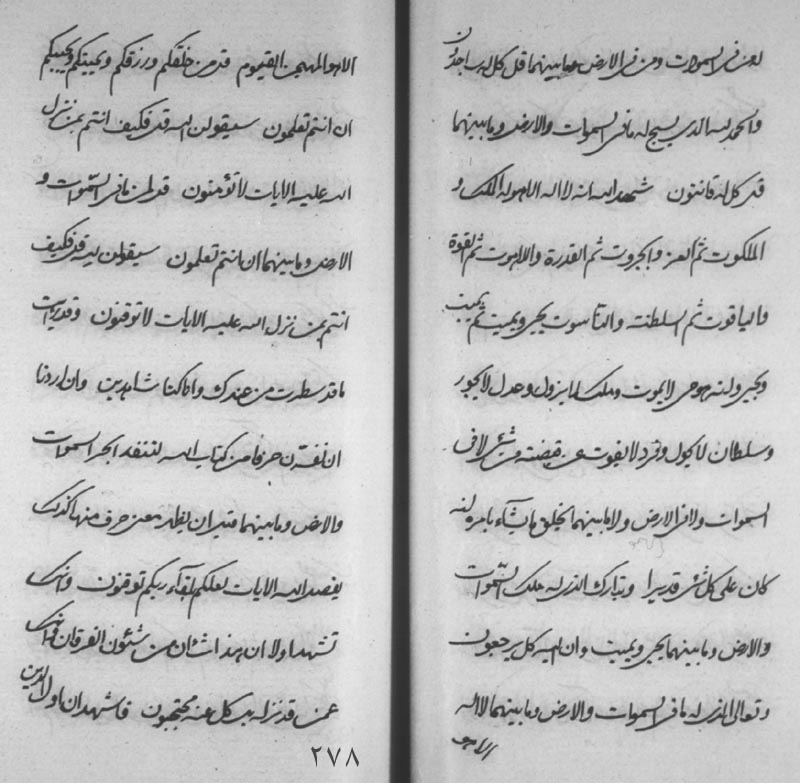 له من فی السموات ومن فی الارض وما بینهما قل کل له ساجدون
والحمد لله الذی یسبح له ما فی السموات والارض وما بینهما
قل کل له قانتون شهد الله انه لا اله الا هو له الملک و
الملکوت ثم العز والجبروت ثم القدرة واللاهوت ثم القوة
والیاقوت ثم السلطنة والناسوت یحیی ویمیت ثم یمیت
ویحیی وانه هو حی لا یموت وملک لا یزول وعدل لا یجور
وسلطان لا یحول وفرد لا یفوت عن قبضته من شیء لا فی
السموات ولا فی الارض ولا ما بینهما یخلق ما یشاء بامره انه
کان علی کل شیء قدیرا وتبارک الذی له ملک السموات
والارض وما بینهما یحیی ویمیت وان الیه کل یرجعون
وتعالی الذی له ما فی السموات والارض وما بینهما لا اله
الا هو
الا هو المهیمن القیوم قل من خلقکم ورزقکم ویمیتکم ویحییکم
ان انتم تعلمون سیقولن الله قل فکیف انتم بمن نزل
الله علیه الایات لا تؤمنون قل لمن ما فی السموات و
الارض وما بینهما ان انتم تعلمون سیقولن لله قل فکیف
انتم بمن نزل الله علیه الایات لا توقنون وقد رایت
ما قد سطرت من عندک وانا کنا شاهدین وان اردنا
ان نفسرن حرفا من کتاب الله لتنفد ابحر السموات
والارض وما بینهما قبل ان یظهر معنی حرف منها کذلک
یفصل الله الایات لعلکم بلقاء ربکم توقنون وانک
تشهد اولا ان هذا شان من شئون الفرقان وانک
عمن قد نزله بکل عنه محتجبون فاشهد ان اول الدین
۲۷۸